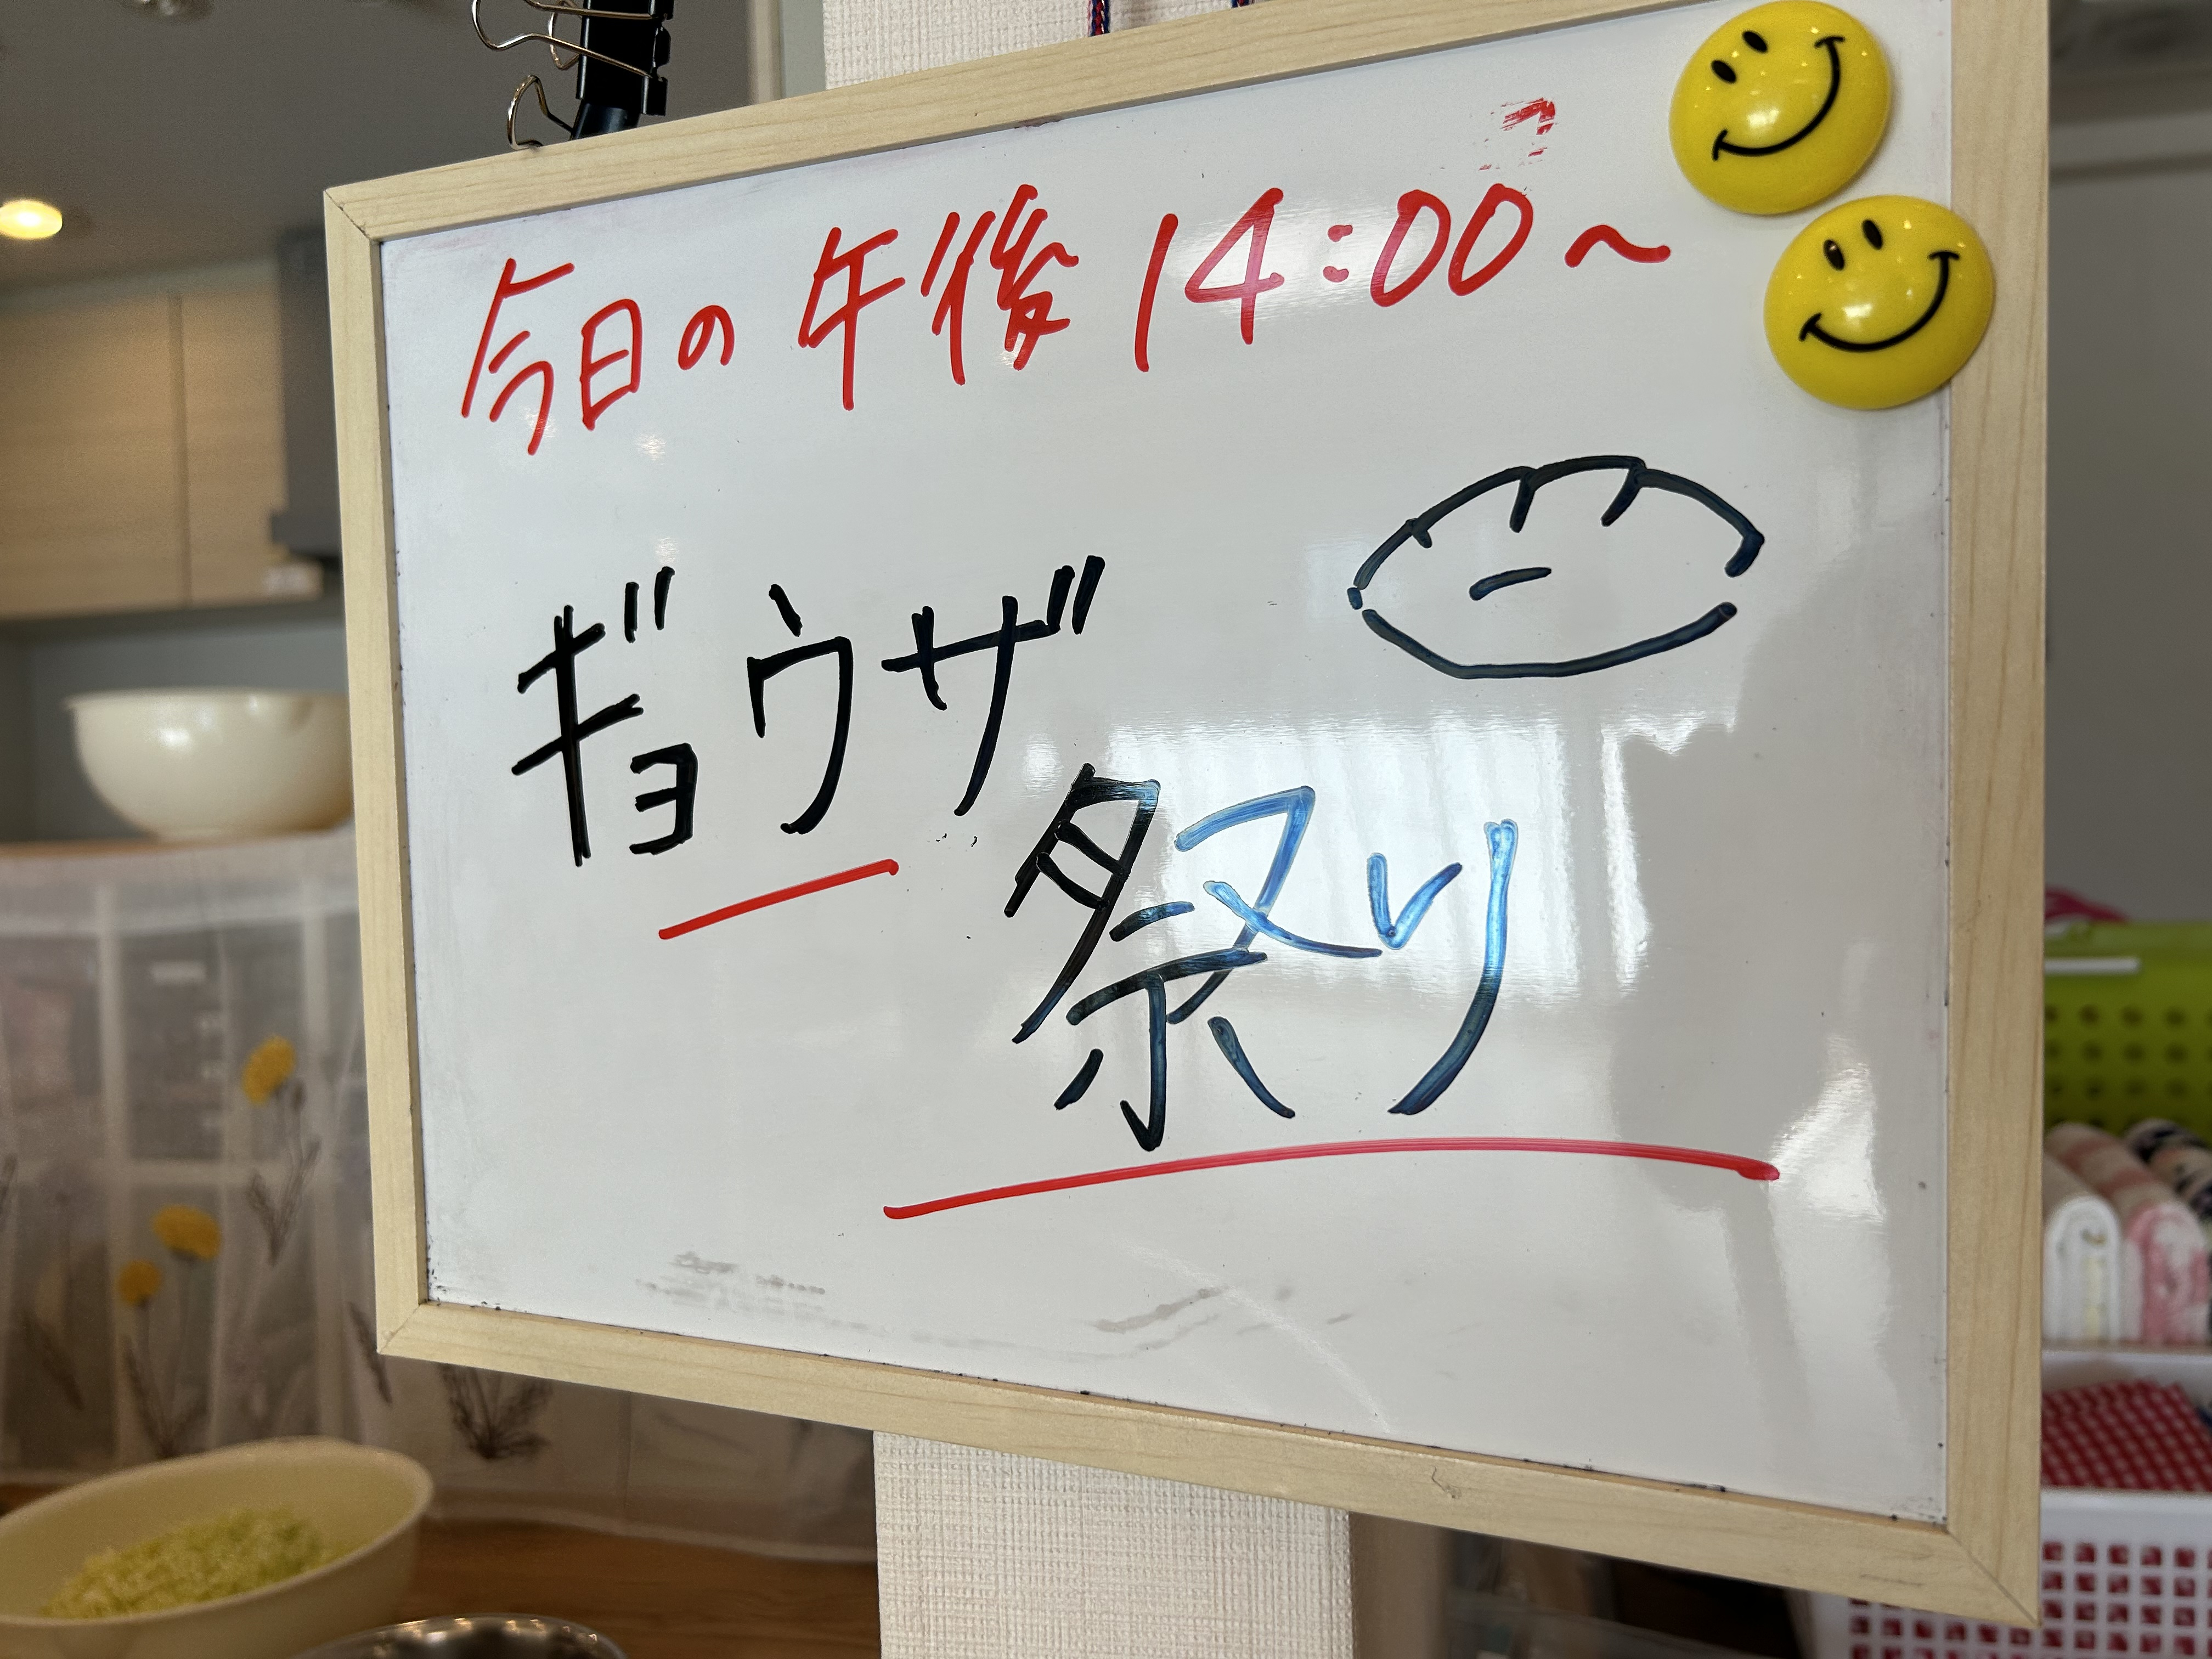 今日の午後14:00~
ギョウザ
祭り